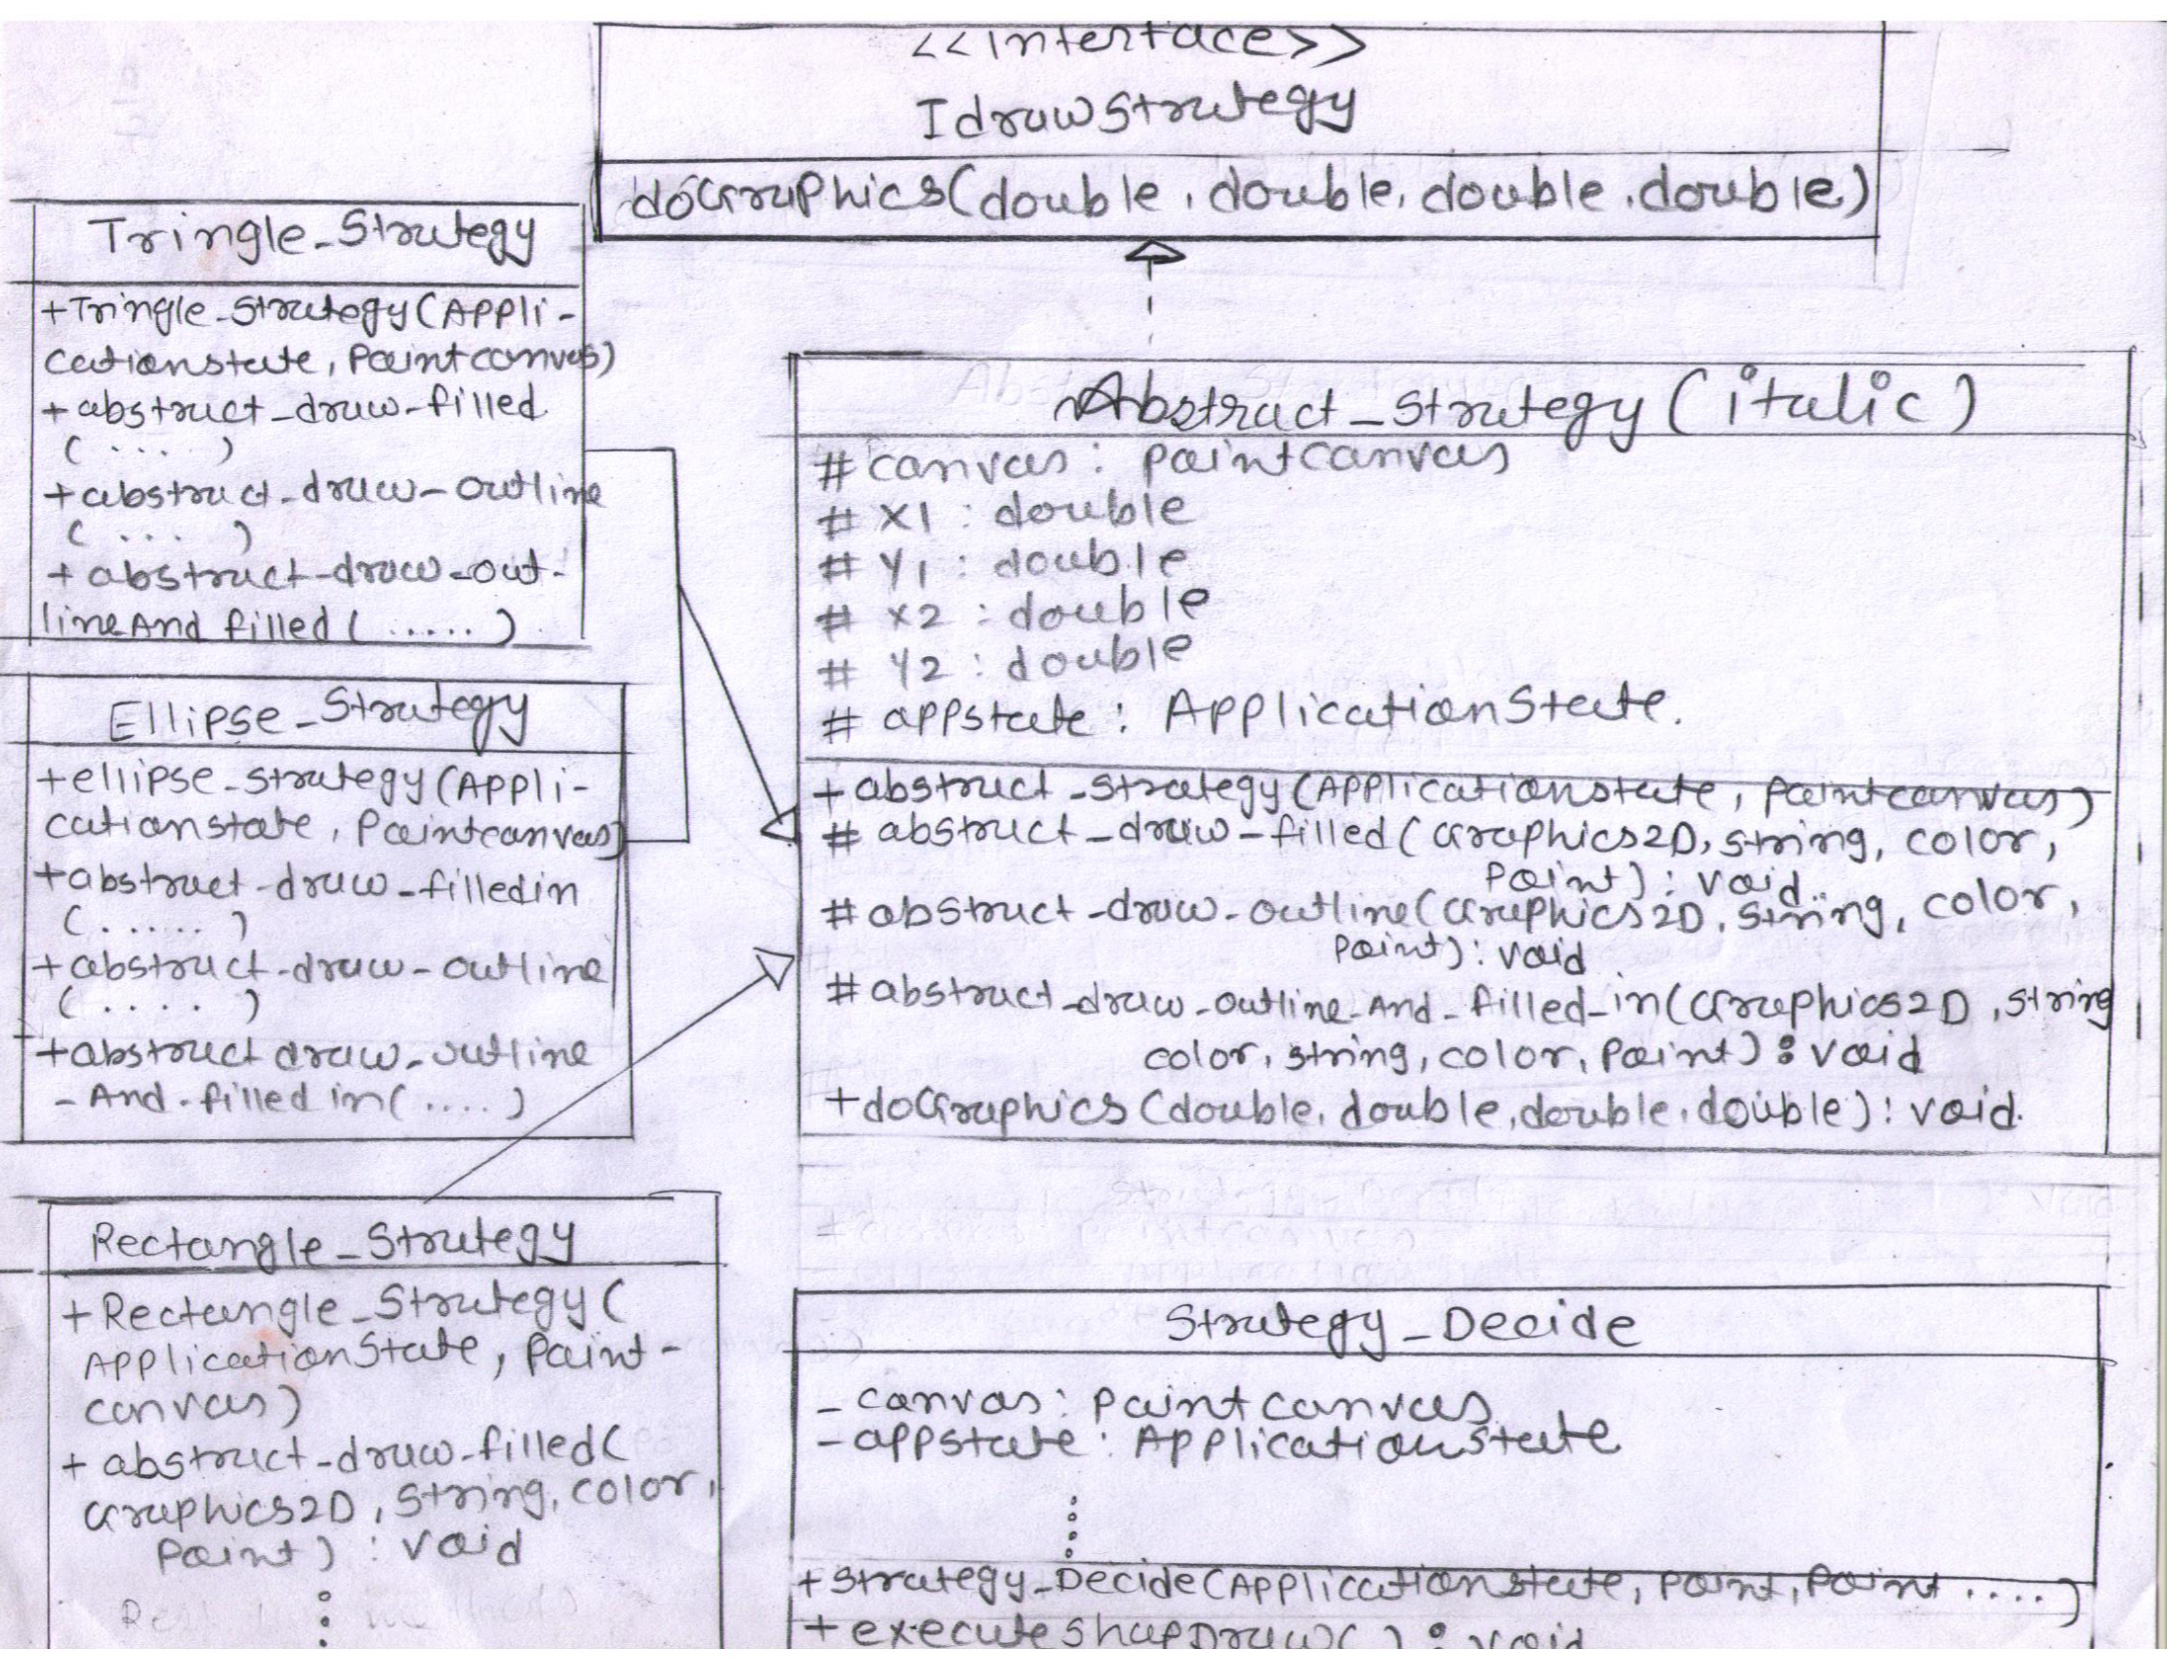 <<interface>>
IdrawStrategy
doGraphics(double, double, double, double)
Tringle_Strategy
+Tringle_Strategy(Appli-
cationstate, Paintcanvas)
+abstract_draw_filled
(....)
+abstract_draw_outline
(....)
+abstract_draw_out-
lineAnd filled(.....)
Ellipse_Strategy
+ellipse_strategy(Appli-
cationstate, Paintcanvas)
+abstract_draw_filledin
(......)
+abstract_draw_outline
(.....)
+abstract draw_outline
_And_filled in(....)
Rectangle_Strategy
+Rectangle_Strategy(
ApplicationState, Paint-
canvas)
+abstract_draw_filled(
Graphics2D, String, color,
Point) : void
Abstract_Strategy(italic)
#canvas: paintcanvas
# x1 : double
# Y1 : double
# x2 : double
# Y2 : double
# appstate: ApplicationState.
+abstract_strategy(Applicationstate, paintcanvas)
# abstract_draw_filled(Graphics2D, string, color,
Point): void..
#abstract_draw_outline(Graphics2D, String, color,
Point): void
#abstract_draw_outline_And_filled_in(Graphics2D, string
color, string, color, Point): void
+doGraphics(double, double, double, double): void.
Strategy_Decide
-canvas: paintcanvas
-appstate: ApplicationState
+Strategy_Decide(Applicationstate, Point, Point....)
+executeshapDraw(): void